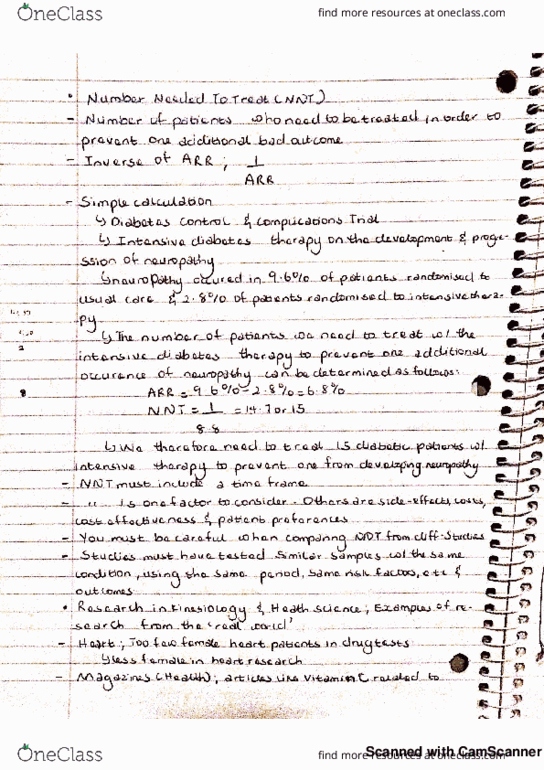 OneClass
find more resources at oneclass.com
• Number Needed To Treat (NNT)
- Number of patients who need to be treated in order to
prevent one additional bad outcome
- Inverse of ARR ; 1
ARR
- Simple calculation
↳ Diabetes Control & complications Trial
↳ Intensive diabetes therapy on the development & progre-
ssion of neuropathy
↳ neuropathy occured in 9.6% of patients randomised to
usual care & 2.8% of patients randomised to intensive thera-
py
↳ The number of patients we need to treat w/ the
intensive diabetes therapy to prevent one additional
occurance of neuropathy can be determined as follows:
ARR = 9.6% - 2.8% = 6.8%
NNT = 1 = 14.7 or 15
8.8
↳ We therefore need to treat 15 diabetic patients w/
intensive therapy to prevent one from developing neuropathy
- NNT must include a time frame
- " " is one factor to consider. Others are side-effects, costs,
cost effectiveness & patient preferences
- You must be careful when comparing NNT from diff. studies
- Studies must have tested similar samples w/ the same
condition, using the same period, same risk factors, etc &
outcomes
• Research in Kinesiology & Health science ; Examples of re-
search from the 'real world'
- Heart ; Too few female heart patients in drug tests
↳ less female in heart research
- Magazines (Health) ; articles like Vitamin C related to
OneClass
find more resources at oneclass.com
Scanned with CamScanner